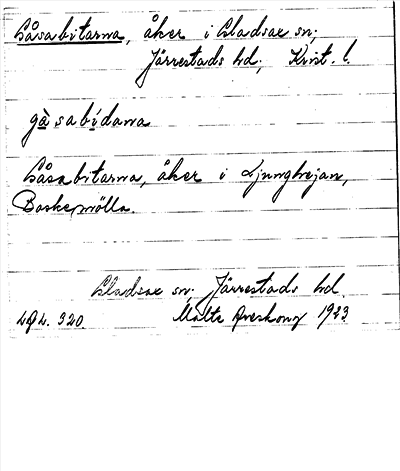 Gåsabitarna, åker i Gladsax sn.
Järrestads hd, Krist. l.
gàsabídana
Gåsabitarna, åker i Ljunghejan,
Baskemölla.
Gladsax sn. Järrestads hd.
320. Malte 1923